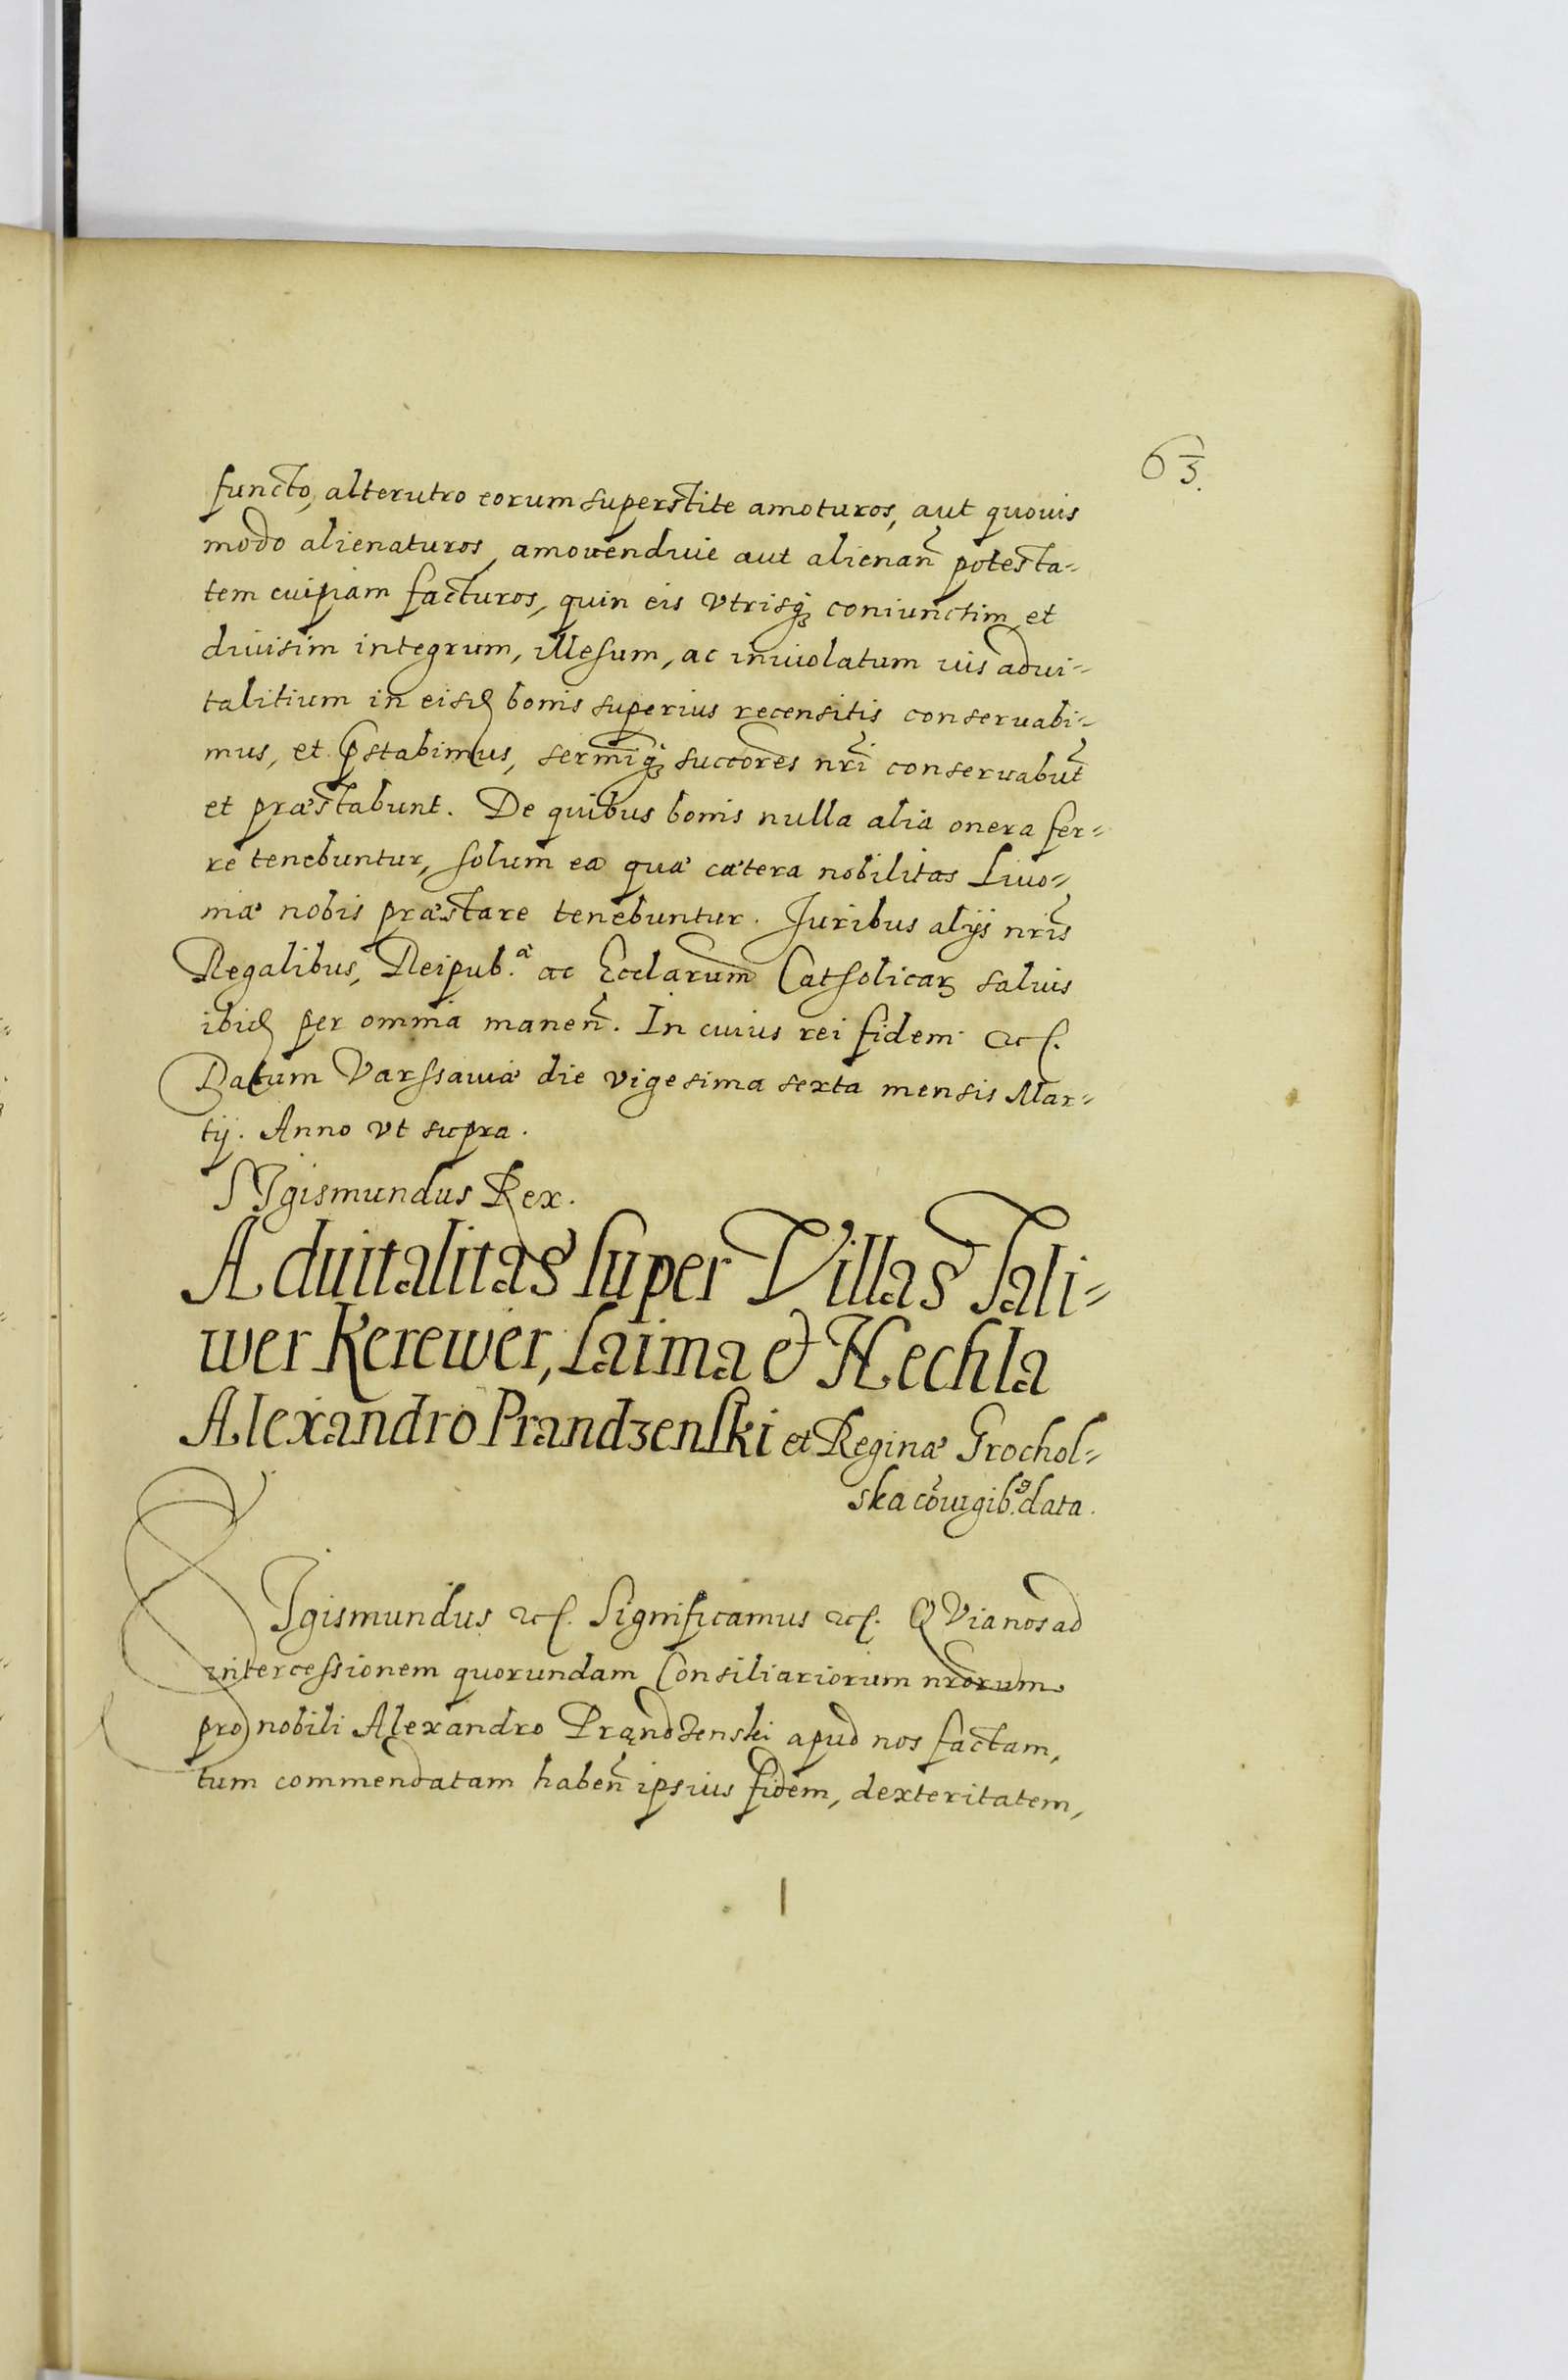 63.
functo, alterutro eorum superstite amoturos, aut quouis
modo alienaturos, amovenduie aut alienan̄ potesta-
tem cuipiam facturos, quin eis vtrisq3 coniunctim et
diuisim integrum, illesum, ac inuiolatum ius adui-
talitium in eisd bonis superius recensitis conseruabi-
mus, et p̄stabimus, sermīq3 succores nr̄i conseruabūt
et præstabunt. De quibus bonis nulla alia onera fer-
re tenebuntur, solum ea quæ cætera nobilitas Liuo-
niæ nobis præstare tenebuntur. Juribus alijs nr̄is
Regalibus, Reipub.æ ac Ecclarum Catholicar3 saluis
ibid per omnia manen̄. In cuius rei fidem &c.
Datum Varssauiæ die vigesima sexta mensis Mar-
tij. Anno vt supra.
SIgismundus Rex.
Aduitalitas super Villas Sali-
wer Kerewer, Laima & Hechla
Alexandro Prandzenski et Reginæ Grochol-
ska cōiugib9 data.
SIgismundus &c. Significamus &c. QVia nos ad
intercessionem quorundam Consiliariorum nrorum
pro nobili Alexandro Prądzenski apud nos factam,
tum commendatam haben̄ ipsius fidem, dexteritatem,